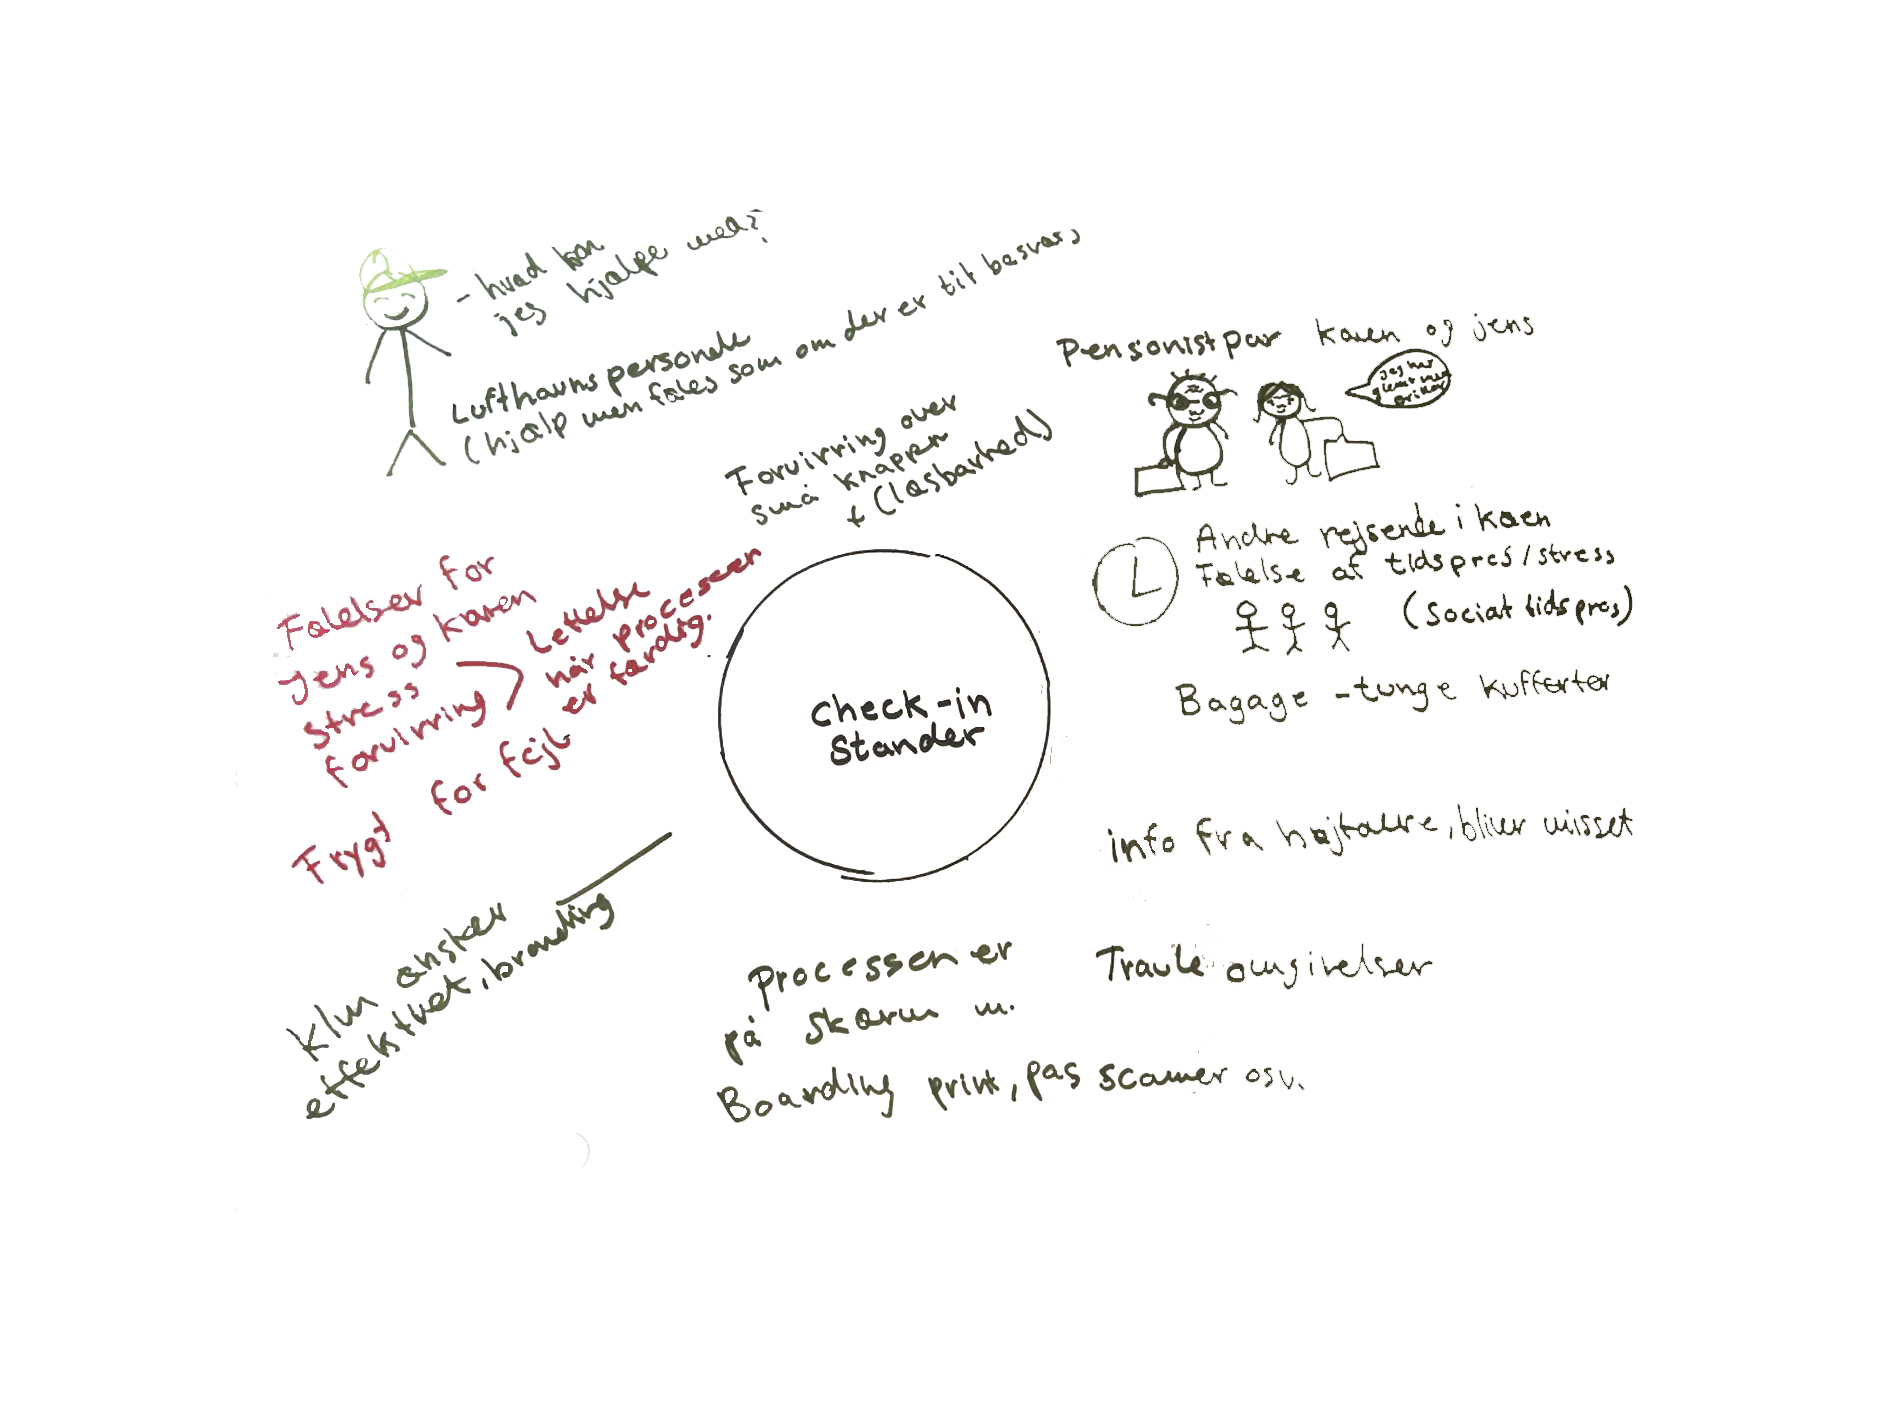 - hvad kan
jeg hjælpe med?
Lufthavns personale
(hjælp men føles som om der er til besvær)
Pensionistpar Karen og Jens
jeg har
glemt min
briller
Forvirring over
små knapper
+ (læsbarhed)
Andre rejsende i køen
Følelse af tidspres/stress
(Socialt tidspres)
Bagage - tunge kufferter
Følelser for
Jens og Karen
Stress
forvirring
Lettelse
når processen
er færdig.
Frygt for fejl
Check-in
Stander
info fra højtalere, bliver misset
Klm ønsker
effektivet, branding
Processen er
på skærm m.
Boarding print, pas scanner osv.
Travle omgivelser